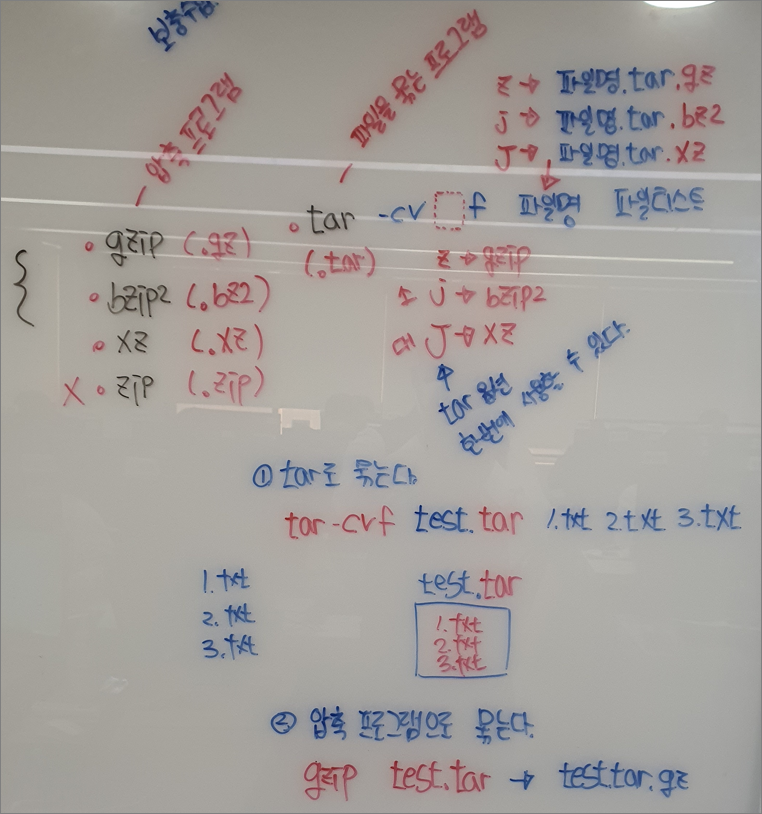 보충수업.
압축 프로그램
파일을 묶는 프로그램
z → 파일명.tar.gz
j → 파일명.tar.bz2
J → 파일명.tar.xz
• tar -cv f 파일명 파일리스트
(.tar)
• gzip (.gz)
• bzip2 (.bz2)
• xz (.xz)
X • zip (.zip)
z → gzip
소 j → bzip2
대 J → xz
tar 옵션
한번에 사용할 수 있다.
① tar로 묶는다.
tar -cvf test.tar 1.txt 2.txt 3.txt
1.txt
2.txt
3.txt
test.tar
1.txt
2.txt
3.txt
② 압축 프로그램으로 묶는다.
gzip test.tar → test.tar.gz